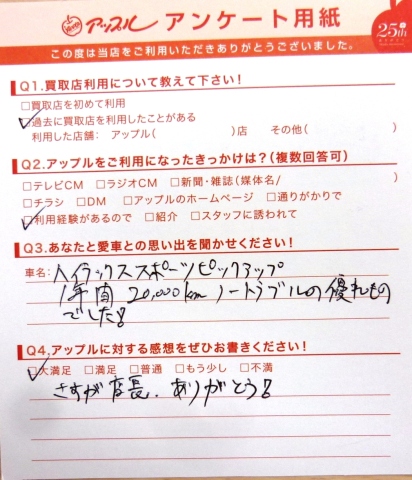 アップル アンケート用紙
25th
この度は当店をご利用いただきありがとうございました。
Q1.買取店利用について教えて下さい!
□買取店を初めて利用
□過去に買取店を利用したことがある
利用した店舗: アップル( )店 その他( )
Q2.アップルをご利用になったきっかけは?(複数回答可)
□テレビCM □ラジオCM □新聞・雑誌(媒体名/ )
□チラシ □DM □アップルのホームページ □通りがかりで
□利用経験があるので □紹介 □スタッフに誘われて
Q3.あなたと愛車との思い出を聞かせください!
車名: ハイラックススポーツピックアップ
1年間 20,000km ノートラブルの優れもの
でした!
Q4.アップルに対する感想をぜひお書きください!
□大満足 □満足 □普通 □もう少し □不満
さすが店長. ありがとう!